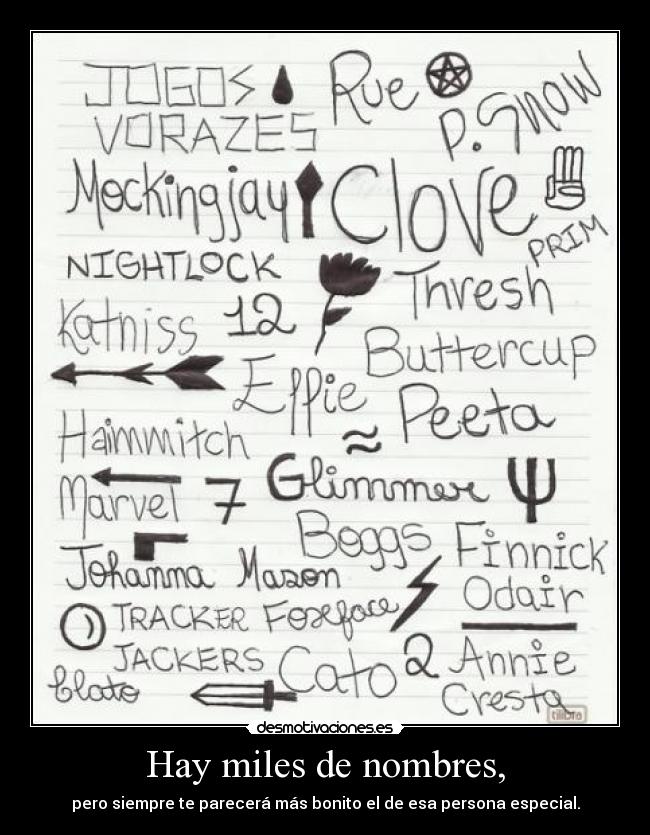 JOGOS Rue
VORAZES P. Snow
Mockingjay Clove
PRIM
NIGHTLOCK Thresh
Katniss 12 Buttercup
Effie Peeta
Haimmitch
Marvel 7 Glimmer
Boggs Finnick
Johanna Mason Odair
TRACKER Foxface
JACKERS Cato 2 Annie
Clato Cresta
tilibra
desmotivaciones.es
Hay miles de nombres,
pero siempre te parecerá más bonito el de esa persona especial.